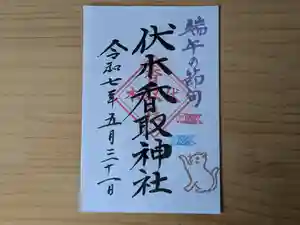 端午の節句
伏木香取神社
令和七年五月三十一日